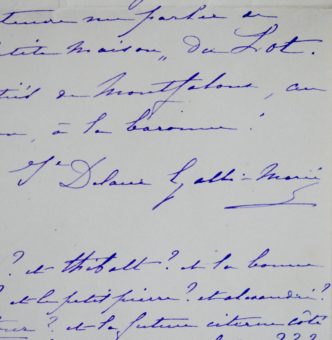 tendu me parler de
tite maison" du Lot.
tiés de Montjalous, au
à la baronne!
Galli-Marié
? et Thibalt? et la bonne
? et le petit pierre? et alexandri?
? et la future citerne côté
???